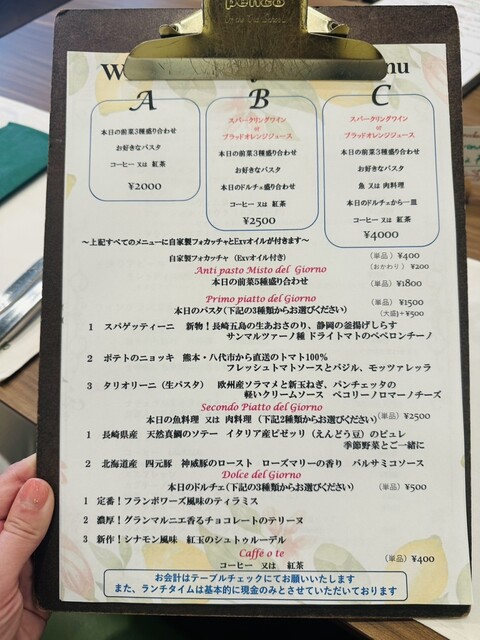 penco
W
nu
A
本日の前菜3種盛り合わせ
お好きなパスタ
コーヒー 又は 紅茶
¥2000
B
スパークリングワイン
or
ブラッドオレンジジュース
本日の前菜3種盛り合わせ
お好きなパスタ
本日のドルチェ盛り合わせ
コーヒー 又は 紅茶
¥2500
C
スパークリングワイン
or
ブラッドオレンジジュース
本日の前菜3種盛り合わせ
お好きなパスタ
魚 又は 肉料理
本日のドルチェから一皿
コーヒー 又は 紅茶
¥4000
〜上記すべてのメニューに自家製フォカッチャとExvオイルが付きます〜
自家製フォカッチャ (Exvオイル付き) (単品) ¥400
(おかわり) ¥200
Anti pasto Misto del Giorno
本日の前菜5種盛り合わせ (単品) ¥1800
Primo piatto del Giorno
本日のパスタ(下記の3種類からお選びください) (単品) ¥1500
(大盛)+¥500
1 スパゲッティーニ 新物!長崎五島の生あおさのり、静岡の釜揚げしらす
サンマルツァーノ種 ドライトマトのペペロンチーノ
2 ポテトのニョッキ 熊本・八代市から直送のトマト100%
フレッシュトマトソースとバジル、モッツァレッラ
3 タリオリーニ(生パスタ) 欧州産ソラマメと新玉ねぎ、パンチェッタの
軽いクリームソース ペコリーノロマーノチーズ
Secondo Piatto del Giorno
本日の魚料理 又は 肉料理 (下記2種類からお選びください) (単品) ¥2500
1 長崎県産 天然真鯛のソテー イタリア産ピゼッリ(えんどう豆)のピュレ
季節野菜とご一緒に
2 北海道産 四元豚 神威豚のロースト ローズマリーの香り バルサミコソース
Dolce del Giorno
本日のドルチェ(下記の3種類からお選びください) (単品) ¥500
1 定番!フランボワーズ風味のティラミス
2 濃厚!グランマルニエ香るチョコレートのテリーヌ
3 新作!シナモン風味 紅玉のシュトゥルーデル
Caffé o te
コーヒー 又は 紅茶 (単品) ¥400
お会計はテーブルチェックにてお願いいたします
また、ランチタイムは基本的に現金のみとさせていただいております